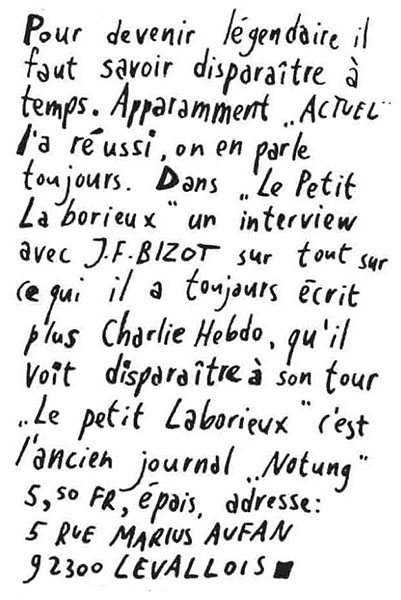 Pour devenir légendaire il
faut savoir disparaître à
temps. Apparamment „ACTUEL"
l'a réussi, on en parle
toujours. Dans „Le Petit
Laborieux" un interview
avec J.F.BIZOT sur tout sur
ce qui il a toujours écrit
plus Charlie Hebdo, qu'il
voit disparaître à son tour
„Le petit Laborieux" c'est
l'ancien journal „Notung"
5,50 FR, épais, adresse:
5 RUE MARIUS AUFAN
92300 LEVALLOIS